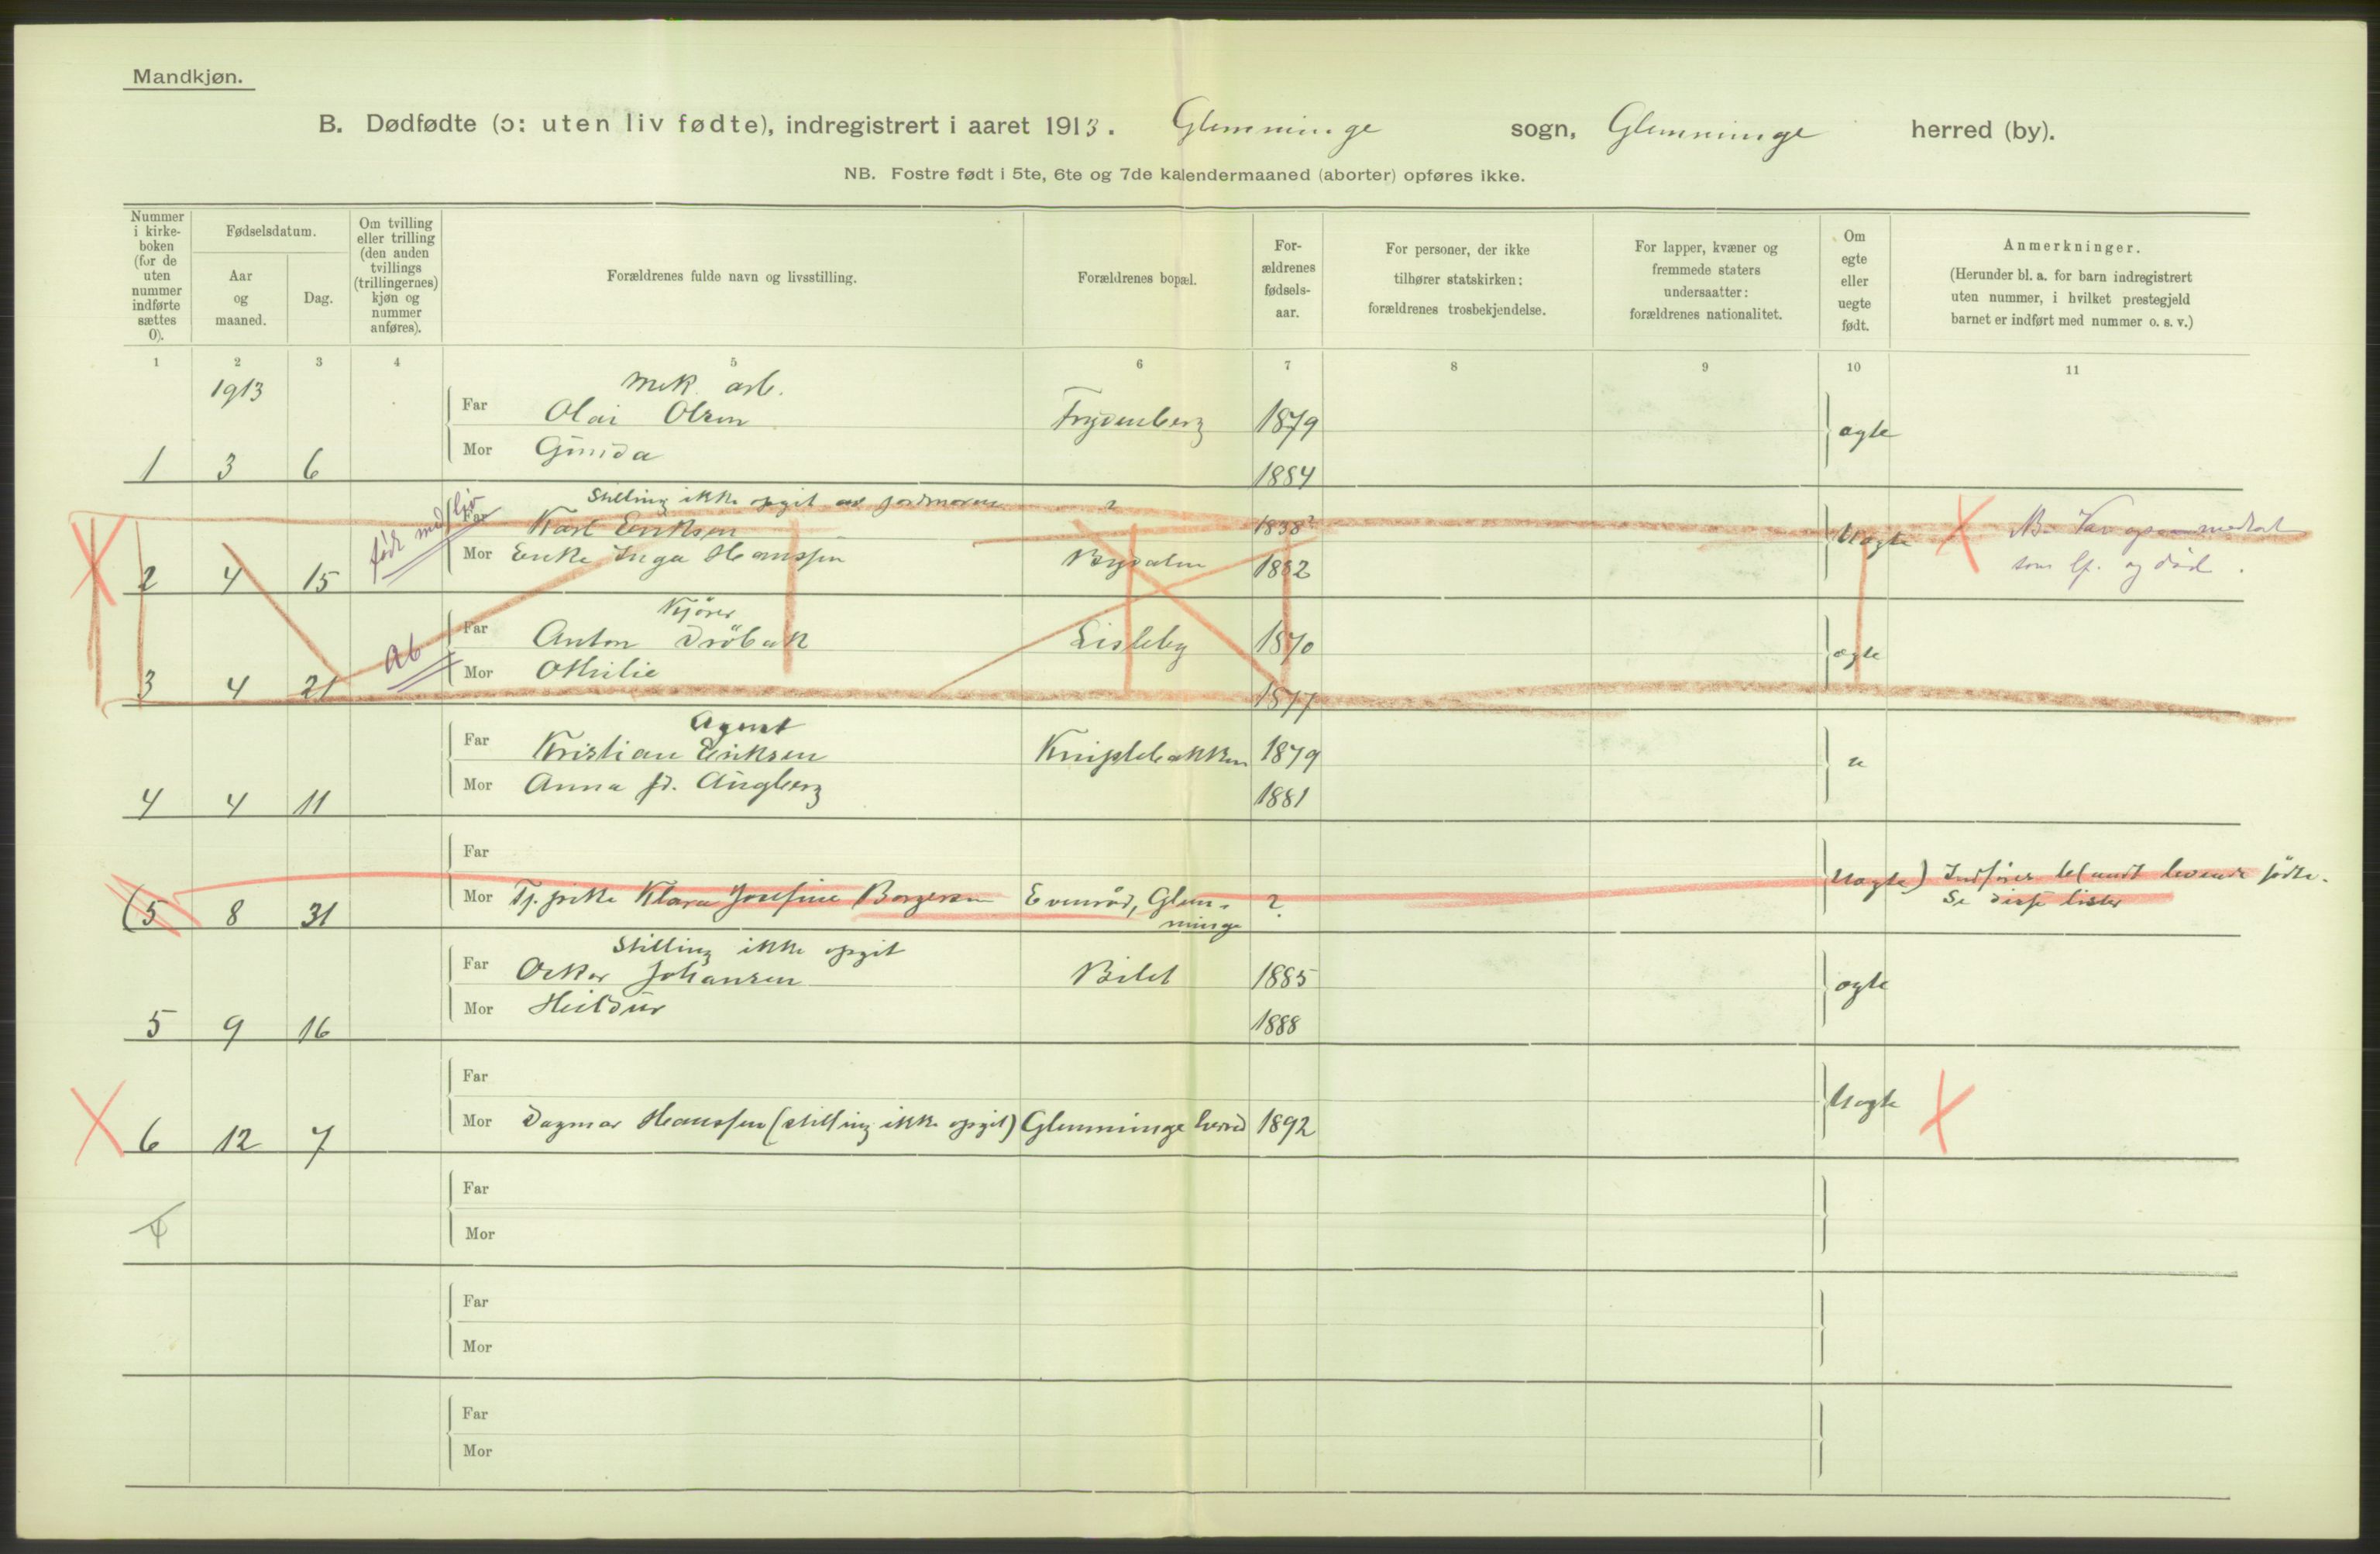 Mandkjøn.
B. Dødfødte (ɔ: uten liv fødte), indregistrert i aaret 1913. Glemminge sogn, Glemminge herred (by).
NB. Fostre født i 5te, 6te og 7de kalendermaaned (aborter) opføres ikke.
Nummer i kirke-boken (for de uten nummer indførte sættes 0).
Fødselsdatum.
Aar og maaned.
Dag.
Om tvilling eller trilling (den anden tvillings (trillingernes) kjøn og nummer anføres).
Forældrenes fulde navn og livsstilling.
Forældrenes bopæl.
For-ældrenes fødsels-aar.
For personer, der ikke tilhører statskirken: forældrenes trosbekjendelse.
For lapper, kvæner og fremmede staters undersaatter: forældrenes nationalitet.
Om egte eller uegte født.
Anmerkninger.
(Herunder bl. a. for barn indregistrert uten nummer, i hvilket prestegjeld barnet er indført med nummer o. s. v.)
1 2 3 4 5 6 7 8 9 10 11
1913
Mek. arb.
Far Olai Olsen Frydenberg 1879 ægte
Mor Gunda
1 3 6 1884
Stilling ikke opgit av jordmoren ?
født med liv
Far Karl Eriksen 1838? Uægte
Mor Enke Inga Hanssen Bydalen 1882
2 4 15
som lf. og død.
Kjører
Far Anton Drøbak Lisleby 1870 ægte
Ab
Mor Othilie
3 4 21 1877
Agent
Far Kristian Eriksen Kniplebakken 1879 "
Mor Anna fd. Augberg
4 4 11 1881
Far
Mor Tj. pike Klara Josefine Borgersen Evenrød, Glem-minge ? Uægte) Indføres blandt levende fødte.
Se disse lister
(5 8 31
Stilling ikke opgit
Far Oskar Johansen Bilet 1885 ægte
Mor Heildur
5 9 16 1888
Far
Mor Dagmar Hanssen (stilling ikke opgit) Glemminge herred 1892 Uægte
6 12 7
Far
Mor
Far
Mor
Far
Mor